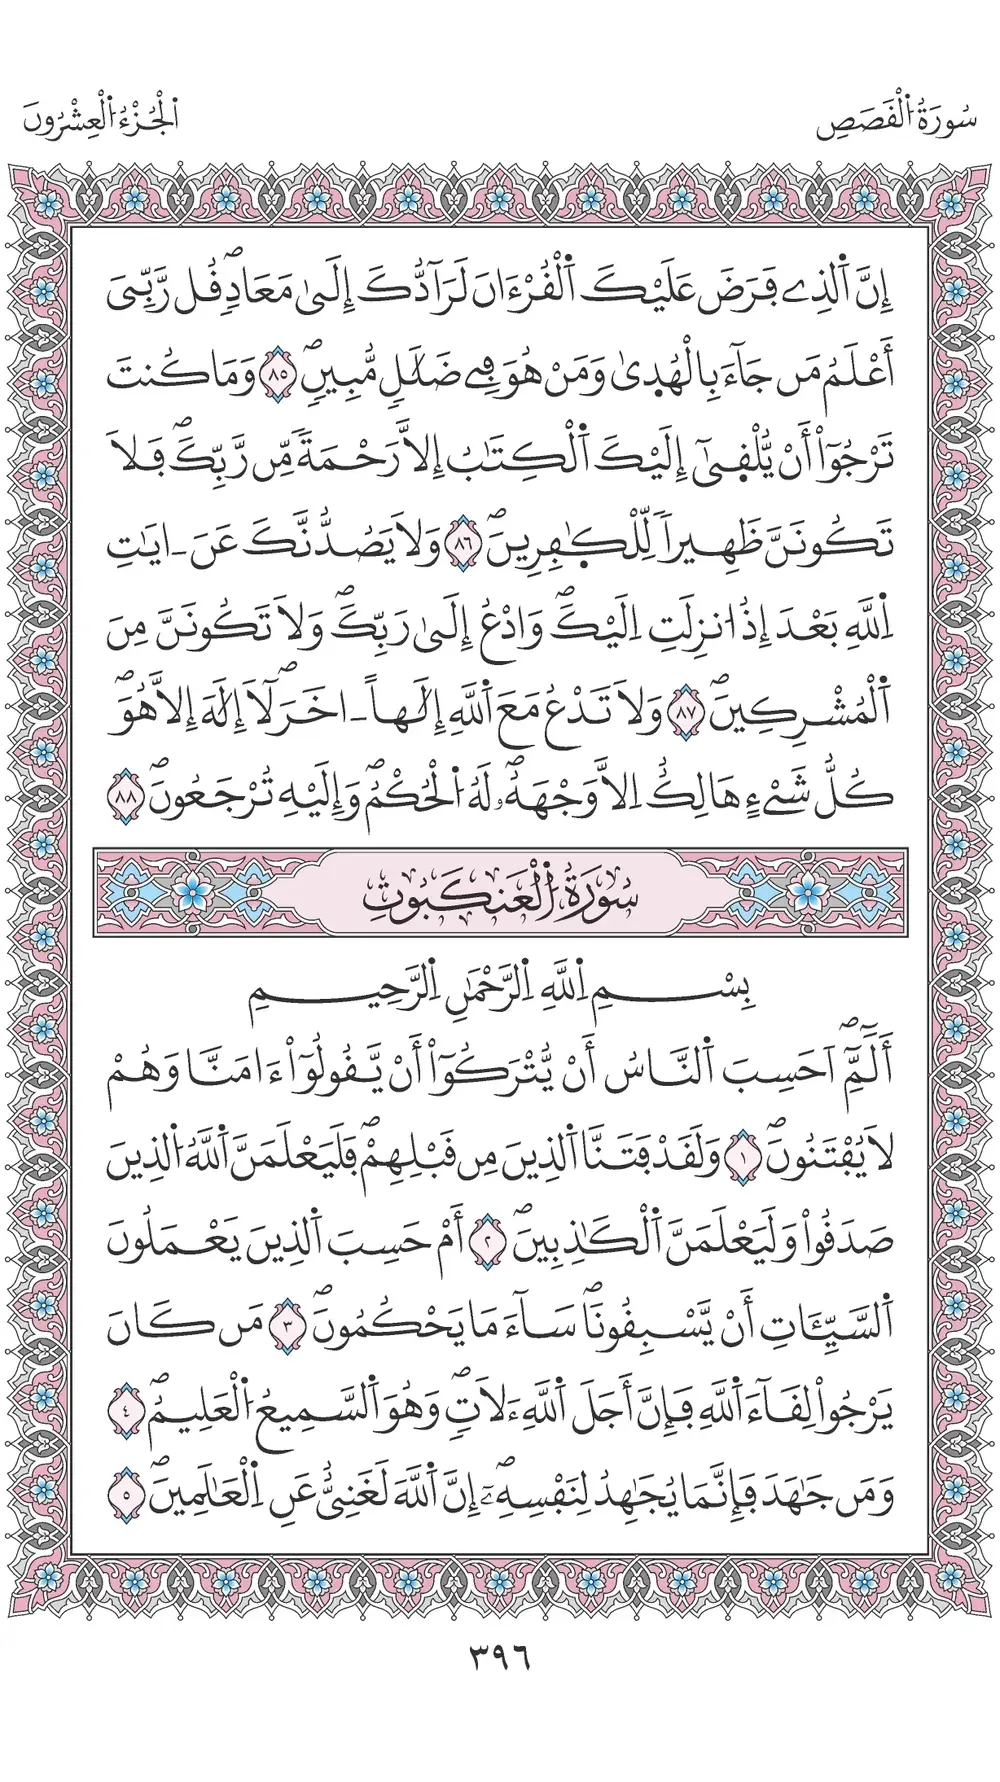 سُورَةُ اُ۬لْقَصَصِ
اَ۬لْجُزْءُ اُ۬لْعِشْرُونَ
إِنَّ اَ۬لذِے فَرَضَ عَلَيْكَ اَ۬لْقُرْءَانَ لَرَآدُّكَ إِلَىٰ مَعَادٖۖ قُل رَّبِّىَ
أَعْلَمُ مَن جَآءَ بِالْهُدۭىٰ وَمَنْ هُوَ فِے ضَلَٰلٖ مُّبِينٖۖ ٨٥ وَمَا كُنتَ
تَرْجُوٓاْ أَنْ يُّلْقۭىٰٓ إِلَيْكَ اَ۬لْكِتَٰبُ إِلَّا رَحْمَةٗ مِّن رَّبِّكَۖ فَلَا
تَكُونَنَّ ظَهِيراٗ لِّلْكٰ۪فِرِينَۖ ٨٦ وَلَا يَصُدُّنَّكَ عَنَ ـ ايَٰتِ
اِ۬للَّهِ بَعْدَ إِذُ ا۟نزِلَتِ اِلَيْكَۖ وَادْعُ إِلَىٰ رَبِّكَۖ وَلَا تَكُونَنَّ مِنَ
اَ۬لْمُشْرِكِينَۖ ٨٧ وَلَا تَدْعُ مَعَ اَ۬للَّهِ إِلَٰهاً ـ اخَرَۖ لَآ إِلَٰهَ إِلَّا هُوَۖ
كُلُّ شَےْءٍ هَالِكٌ اِلَّا وَجْهَهُۥۖ لَهُ اُ۬لْحُكْمُۖ وَإِلَيْهِ تُرْجَعُونَۖ ٨٨
سُورَةُ اُ۬لْعَنكَبُوتِ
بِسْمِ اِ۬للَّهِ اِ۬لرَّحْمَٰنِ اِ۬لرَّحِيمِ
أَلَٓمِّٓۖ اَحَسِبَ اَ۬لنَّاسُ أَنْ يُّتْرَكُوٓاْ أَنْ يَّقُولُوٓاْ ءَامَنَّا وَهُمْ
لَا يُفْتَنُونَۖ ١ وَلَقَدْ فَتَنَّا اَ۬لذِينَ مِن قَبْلِهِمْۖ فَلَيَعْلَمَنَّ اَ۬للَّهُ اُ۬لذِينَ
صَدَقُواْ وَلَيَعْلَمَنَّ اَ۬لْكَٰذِبِينَۖ ٢ أَمْ حَسِبَ اَ۬لذِينَ يَعْمَلُونَ
اَ۬لسَّيِّـَٔاتِ أَنْ يَّسْبِقُونَاۖ سَآءَ مَا يَحْكُمُونَۖ ٣ مَن كَانَ
يَرْجُواْ لِقَآءَ اَ۬للَّهِ فَإِنَّ أَجَلَ اَ۬للَّهِ ءَلَاتٖۖ وَهُوَ اَ۬لسَّمِيعُ اُ۬لْعَلِيمُۖ ٤
وَمَن جَٰهَدَ فَإِنَّمَا يُجَٰهِدُ لِنَفْسِهِۦٓۖ إِنَّ اَ۬للَّهَ لَغَنِيٌّ عَنِ اِ۬لْعَٰلَمِينَۖ ٥
٣٩٦